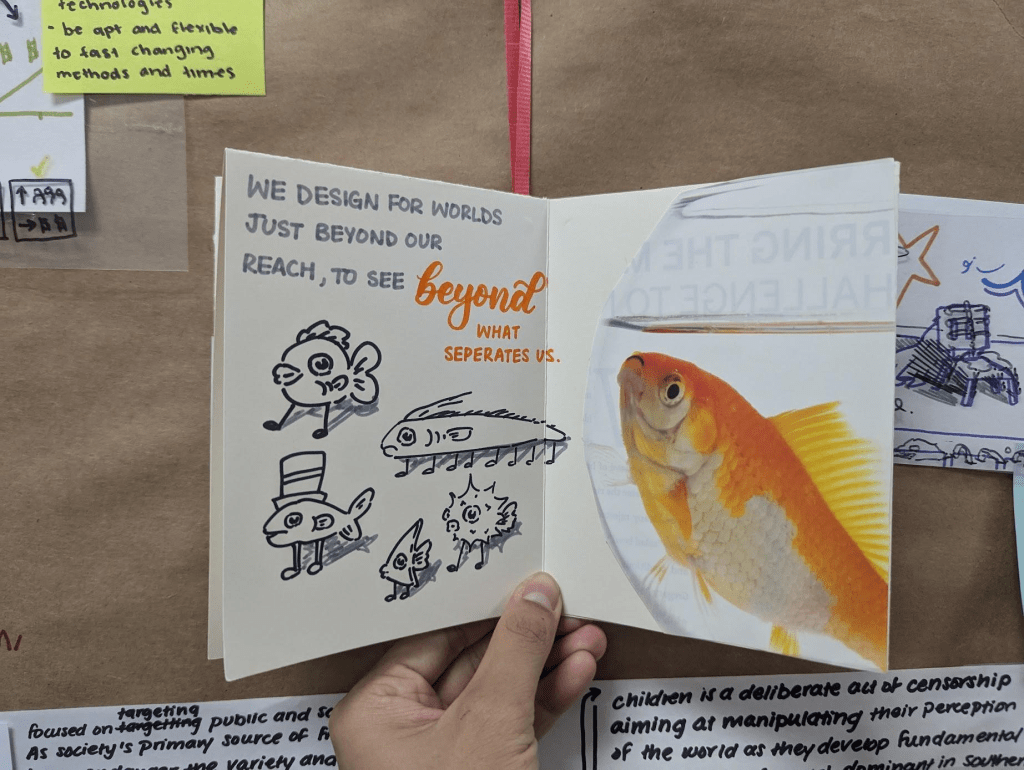 technologies
- be apt and flexible
to fast changing
methods and times
WE DESIGN FOR WORLDS
JUST BEYOND OUR
REACH, TO SEE beyond
WHAT
SEPERATES US.
RRING THE
HALLENGE TO
targeting
focused on targetting public and
As society's primary source of
the variety and
children is a deliberate act of censorship
aiming at manipulating their perception
of the world as they develop fundamental
dominant in southern